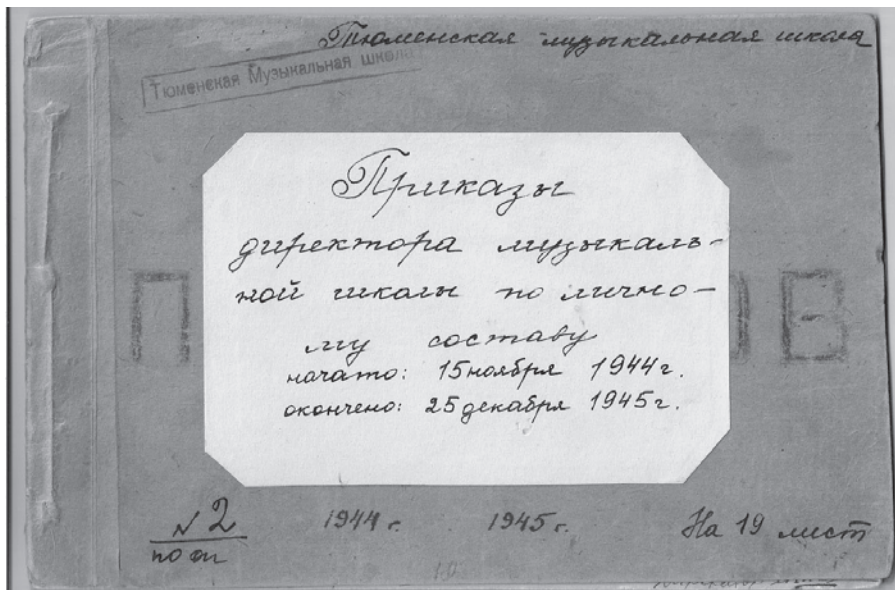 Тюменская музыкальная школа
Тюменская Музыкальная школа
Приказы
директора музыкаль-
ной школы по лично-
му составу
начато: 15 ноября 1944 г.
окончено: 25 декабря 1945 г.
№ 2
по оп
1944 г. 1945 г.
На 19 лист